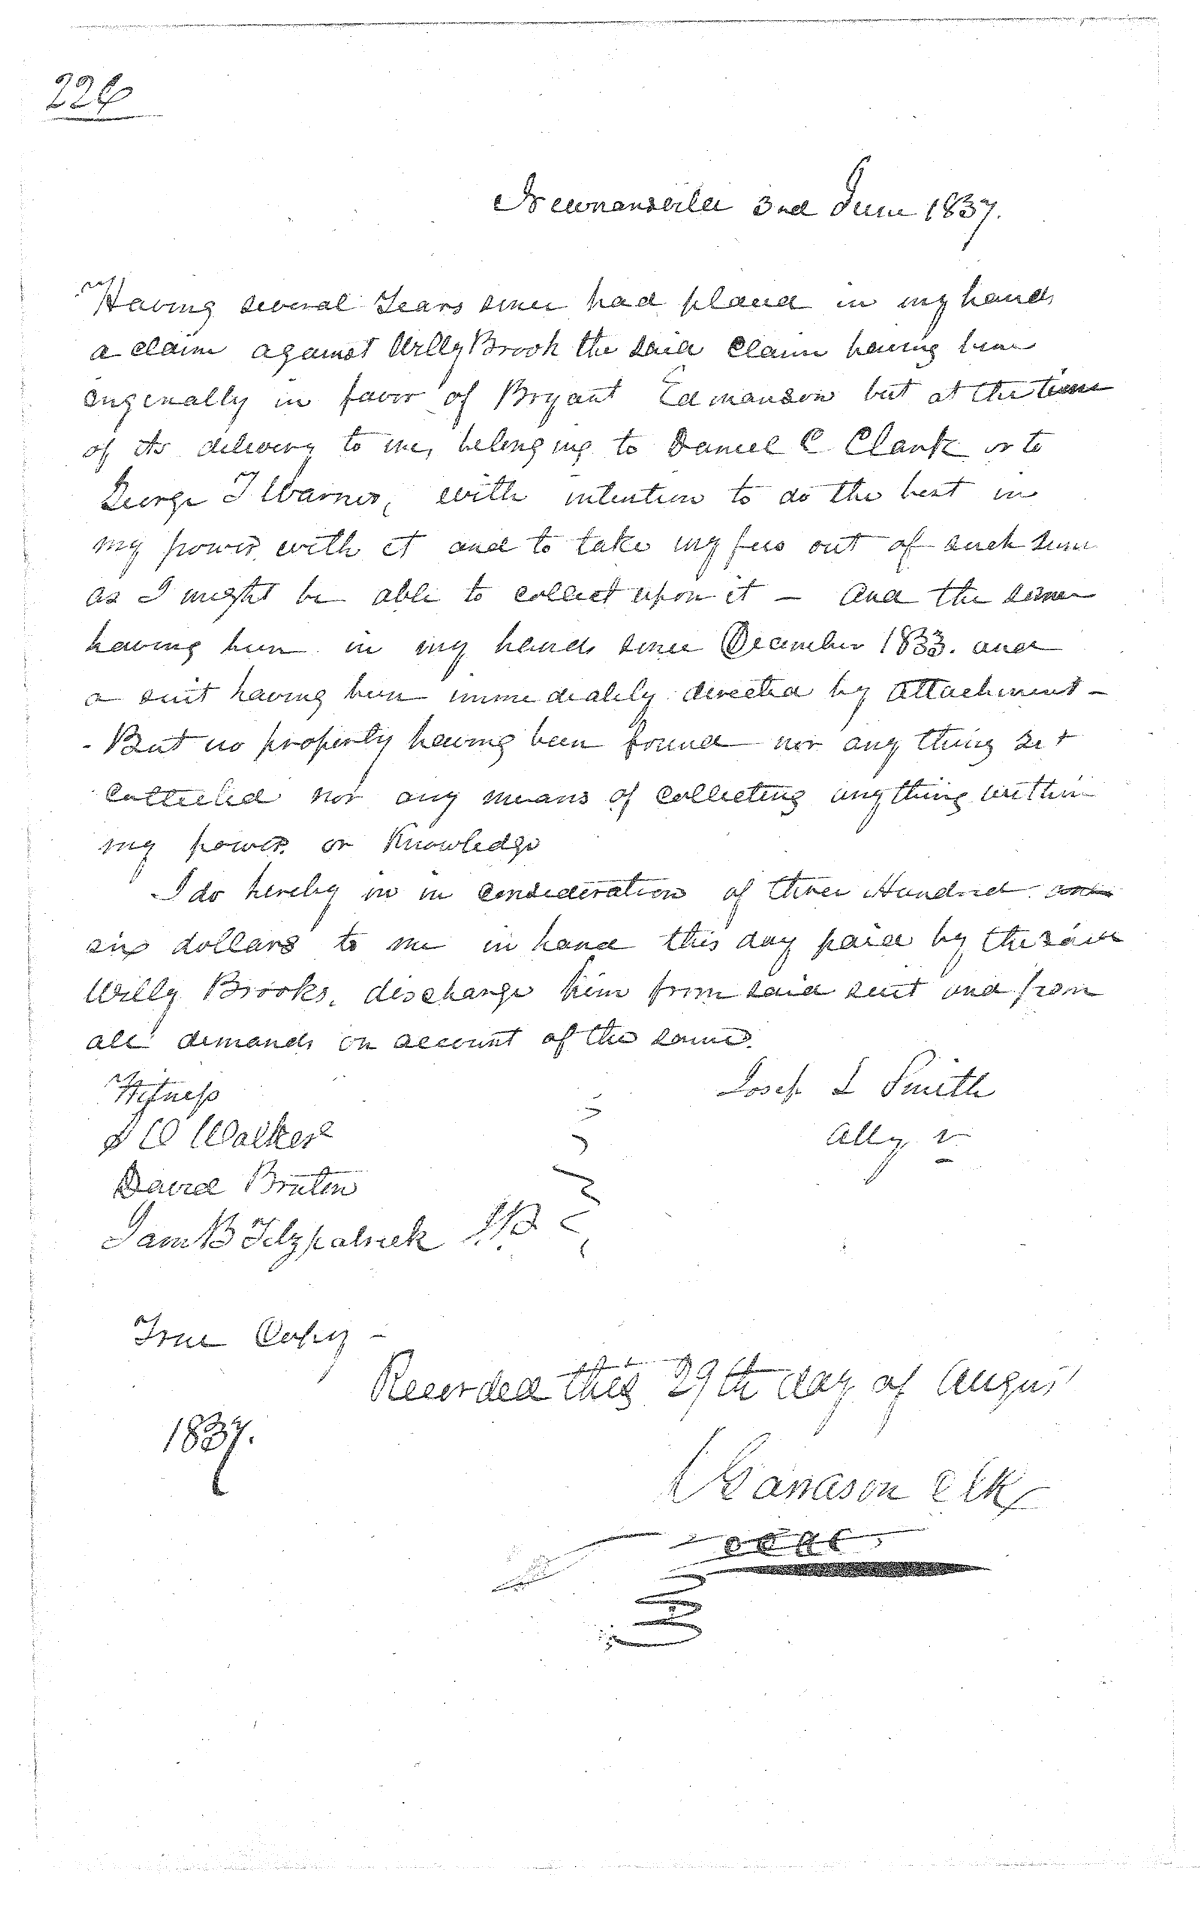 226
Newnansville 3rd June 1837.
Having several Years since had placed in my hands
a claim against Willy Brook the said Claim having been
originally in favor of Bryant Edmanson but at the time
of its delivery to me, belonging to Daniel C Clark or to
George T Warner, with intention to do the best in
my power with it and to take my fees out of such sum
as I might be able to collect upon it – and the same
having been in my hands since December 1833. and
a suit having been immediately directed by attachment –
- But no property having been found nor any thing yet
collected nor any means of collecting anything within
my power or Knowledge
I do hereby in in consideration of three Hundred and
six dollars to me in hand this day paid by the said
Willy Brooks, discharge him from said suit and from
all demands on account of the same.
Witness
Joseph L Smith
S W Walker
Atty
David Bruton
Sam B Fitzpatrick J.P.
True Copy –
Recorded this 29th day of August
1837.
Garrason Clk
CCAC